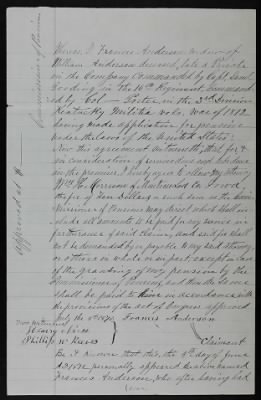 Whereas I Frances Anderson widow of
William Anderson deceased, late a Private
in the Company Commanded by Capt. Saml
Gooding in the 10th Regiment, commanded
by Col — Porter, in the 3rd Division
Kentucky Militia vols. war of 1812
having made application for pension
under the laws of the United States.
Now this agreement witnesseth, that for &
in consideration of services done and to be done
in the premises I hereby agree to allow my Attorney
Wm H. of
the fee of Ten Dollars or such sum as the Com-
missioner of Pensions may direct which shall in-
clude all amounts to be paid for any service in
furtherance of said claim, and said fee shall
not be demanded by or payable to my said Attorney
or others in whole or in part, except in case
of the granting of my pension by the
Commissioner of Pensions, and then the same
shall be paid to him in accordance with
the provisions of the act of Congress approved
July the 8th 1870. Francis Anderson
Two Witnesses
Henry
Phillip W
Claimant
Be it known that this, the 4th day of June
A.D. 1872 personally appeared the above named
Frances Anderson, who after having had
over
Approved at $
Commissioner of Pensions